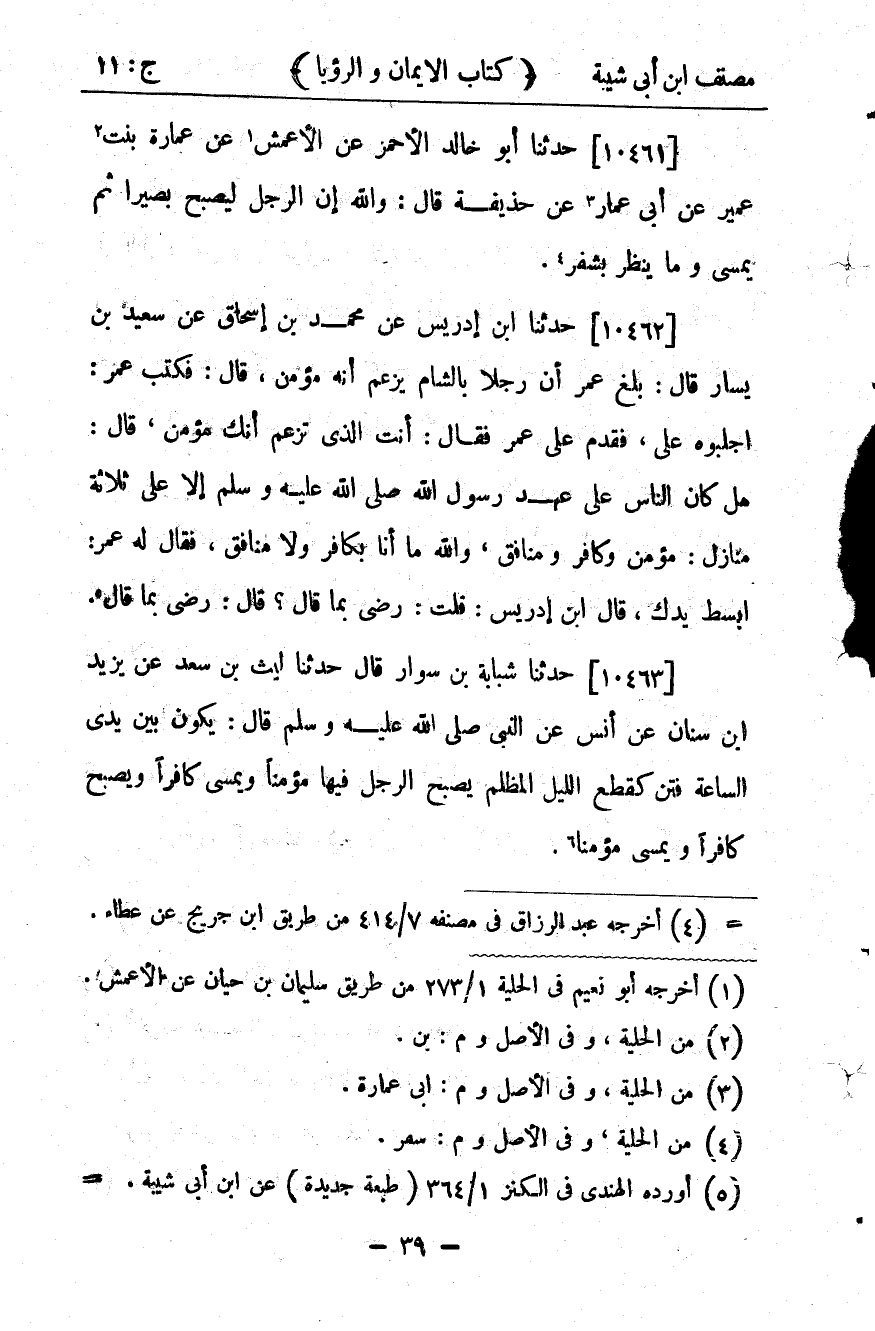 مصنف ابن أبى شيبة ﴿ كتاب الايمان و الرؤيا ﴾ ج : ١١
[١٠٤٦١] حدثنا أبو خالد الأحمر عن الأعمش١ عن عمارة بنت٢
عمير عن أبى عمار٣ عن حذيفة قال : والله إن الرجل ليصبح بصيرا ثم
يمسى و ما ينظر بشفر٤ .
[١٠٤٦٢] حدثنا ابن إدريس عن محمد بن إسحاق عن سعيد بن
يسار قال : بلغ عمر أن رجلا بالشام يزعم أنه مؤمن ، قال : فكتب عمر :
اجلبوه على ، فقدم على عمر فقال : أنت الذى تزعم أنك مؤمن ، قال :
هل كان الناس على عهد رسول الله صلى الله عليه و سلم إلا على ثلاثة
منازل : مؤمن وكافر و منافق ، والله ما أنا بكافر ولا منافق ، فقال له عمر:
ابسط يدك ، قال ابن إدريس : قلت : رضى بما قال ؟ قال : رضى بما قال٥.
[١٠٤٦٣] حدثنا شبابة بن سوار قال حدثنا ليث بن سعد عن يزيد
ابن سنان عن أنس عن النبى صلى الله عليه و سلم قال : يكون بين يدى
الساعة فتن كقطع الليل المظلم يصبح الرجل فيها مؤمناً ويمسى كافراً ويصبح
كافراً و يمسى مؤمنا٦ .
= (٤) أخرجه عبد الرزاق فى مصنفه ٤١٤/٧ من طريق ابن جريج عن عطاء .
(١) أخرجه أبو نعيم فى الحلية ٢٧٣/١ من طريق سليمان بن حيان عن الأعمش .
(٢) من الحلية ، و فى الأصل و م : بن .
(٣) من الحلية ، و فى الأصل و م : ابى عمارة .
(٤) من الحلية ، و فى الأصل و م : سفر .
(٥) أورده الهندى فى الكنز ٣٦٤/١ ( طبعة جديدة ) عن ابن أبى شيبة . =
– ٣٩ –